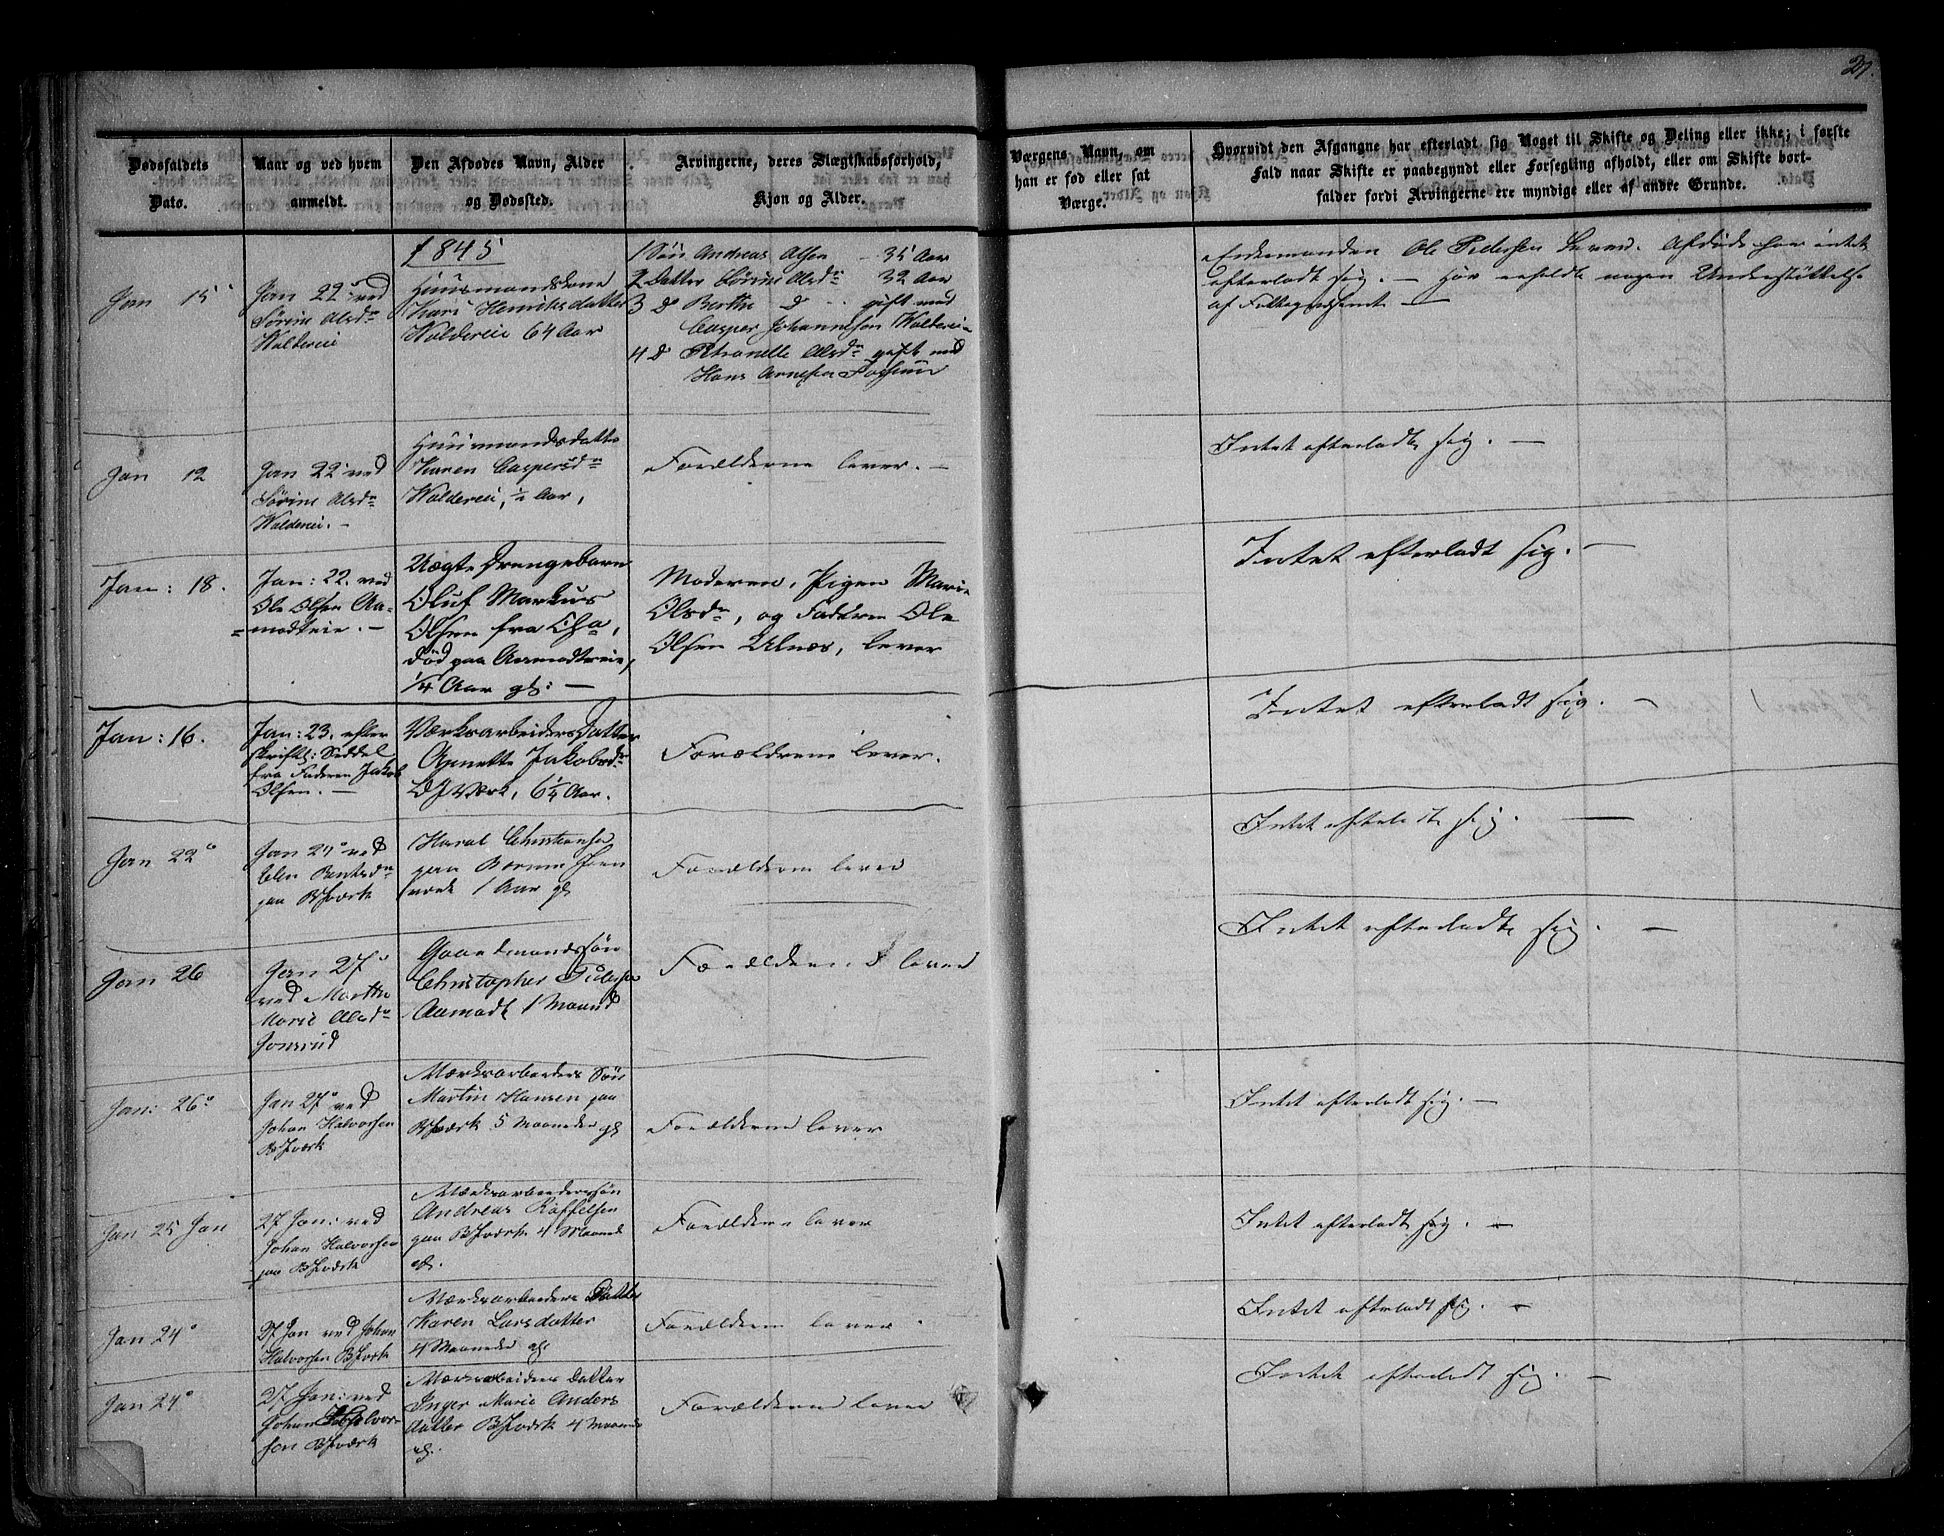 27.
Dødsfaldets
Dato.
Naar og ved hvem
anmeldt.
Den Afdødes Navn, Alder
og Dødssted.
Arvingerne, deres Slægtskabsforhold,
Kjøn og Alder.
Værgens Navn, om
han er fød eller sat
Værge.
Hvorvidt den Afgangne har efterladt sig Noget til Skifte og Deling eller ikke; i første
Fald naar Skifte er paabegyndt eller Forsegling afholdt, eller om Skifte bort-
falder fordi Arvingerne ere myndige eller af andre Grunde.
1845
Jan 15
Jan 22 ved
Sørine Olsdr
Waldereie
Huusmandskone
Kari Henriksdatter
Waldereie 64 Aar
1 Søn Andreas Olsen - 35 Aar
2 Datter Sørine Olsdr 32 Aar
3 Do Berthe Do gift med
Casper Johannesen Waldereie
4 D Petronelle Olsdr gift med
Hans Arnesen Fossum
Enkemanden Ole Pedersen lever. Afdøde har intet
efterladt sig. - Har erholdt nogen Understøttelse
af
Jan 12
Jan 22 ved
Sørine Olsdr
Waldereie. -
Huusmandsdatter
Karen Caspersdr
Waldereie, ½ Aar,
Forældrene lever. -
Intet efterladt sig. -
Jan: 18.
Jan: 22. ved
Ole Olsen Aa-
=modteie. -
Uægte Drengebarn
Oluf Markus
Olsen fra
død paa Aamodteie,
1/4 Aar gl: -
Moderen, Pigen Marie
Olsdr, og Faderen Ole
Olsen Ulnæs, lever
Intet efterladt sig. -
Jan: 16.
Jan: 23. efter
skriftl: Seddel
fra Faderen Jakob
Olsen. -
Værksarbeiders Datter
Agnette Jakobsdr
BJVærk, 6¼ Aar.
Forældrene lever.
Intet efterladt sig. -
Jan 22
Jan 27 ved
Elen Berntsdr
paa BJværk
Haral Christensen
paa Bærums Jern
værk 1 Aar gl
Forældrene lever
Intet efterladt sig. -
Jan 26
Jan 27
ved Marthe
Marie Olsdr
Jonsrud
Gaardmandssøn
Christopher Pedersen
Aamodt 1 Maaned
Forældrene lever
Intet efterladt sig. -
Jan: 26
Jan 27 ved
Johan Halvorsen
BJværk
Værksarbeiders Søn
Martin Hansen paa
BJværk 5 Maaneder gl
Forældrene lever
Intet efterladt sig. -
Jan 25 Jan
27 Jan: ved
Johan Halvorsen
paa BJværk
Værksarbeiderssøn
Andreas
paa BJværk 4 Maaned
gl.
Forældrene lever
Intet efterladt sig. -
Jan 24
27 Jan ved Johan
Halvorsen BJværk
Værksarbeiders Datter
Karen Larsdatter
4 Maaneder gl.
Forældrene lever
Intet efterladt sig. -
Jan 24
27 Jan: ved
Johan Halvor-
sen BJværk
Værksarbeiders Datter
Inger Marie Anders
datter BJværk 4 Maaned
gl.
Forældrene lever
Intet efterladt sig. -